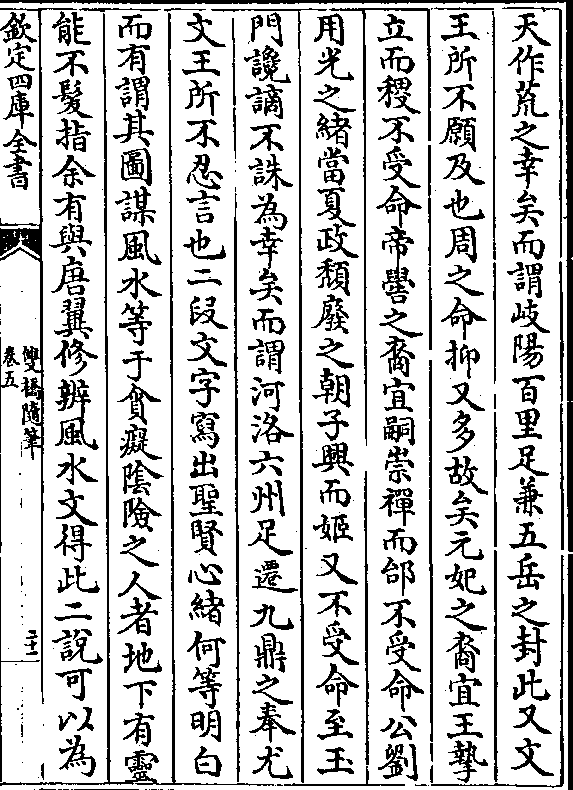 天作荒之幸矣而謂岐陽百里足兼五岳之封此又文
王所不願及也周之命抑又多故矣元妃之裔宜王摯
立而稷不受命帝嚳之裔宜嗣崇禪而邰不受命公劉
用光之緒當夏政頹廢之朝子興而姬又不受命至玉
門讒謫不誅為幸矣而謂河洛六州足遷九鼎之奉尤
文王所不忍言也二段文字寫出聖賢心緒何等明白
而有謂其圖謀風水等于貪癡陰險之人者地下有靈
能不髮指余有與唐翼修辦風水文得此二說可以為
欽定四庫全書
雙橋隨筆
卷五
二十二